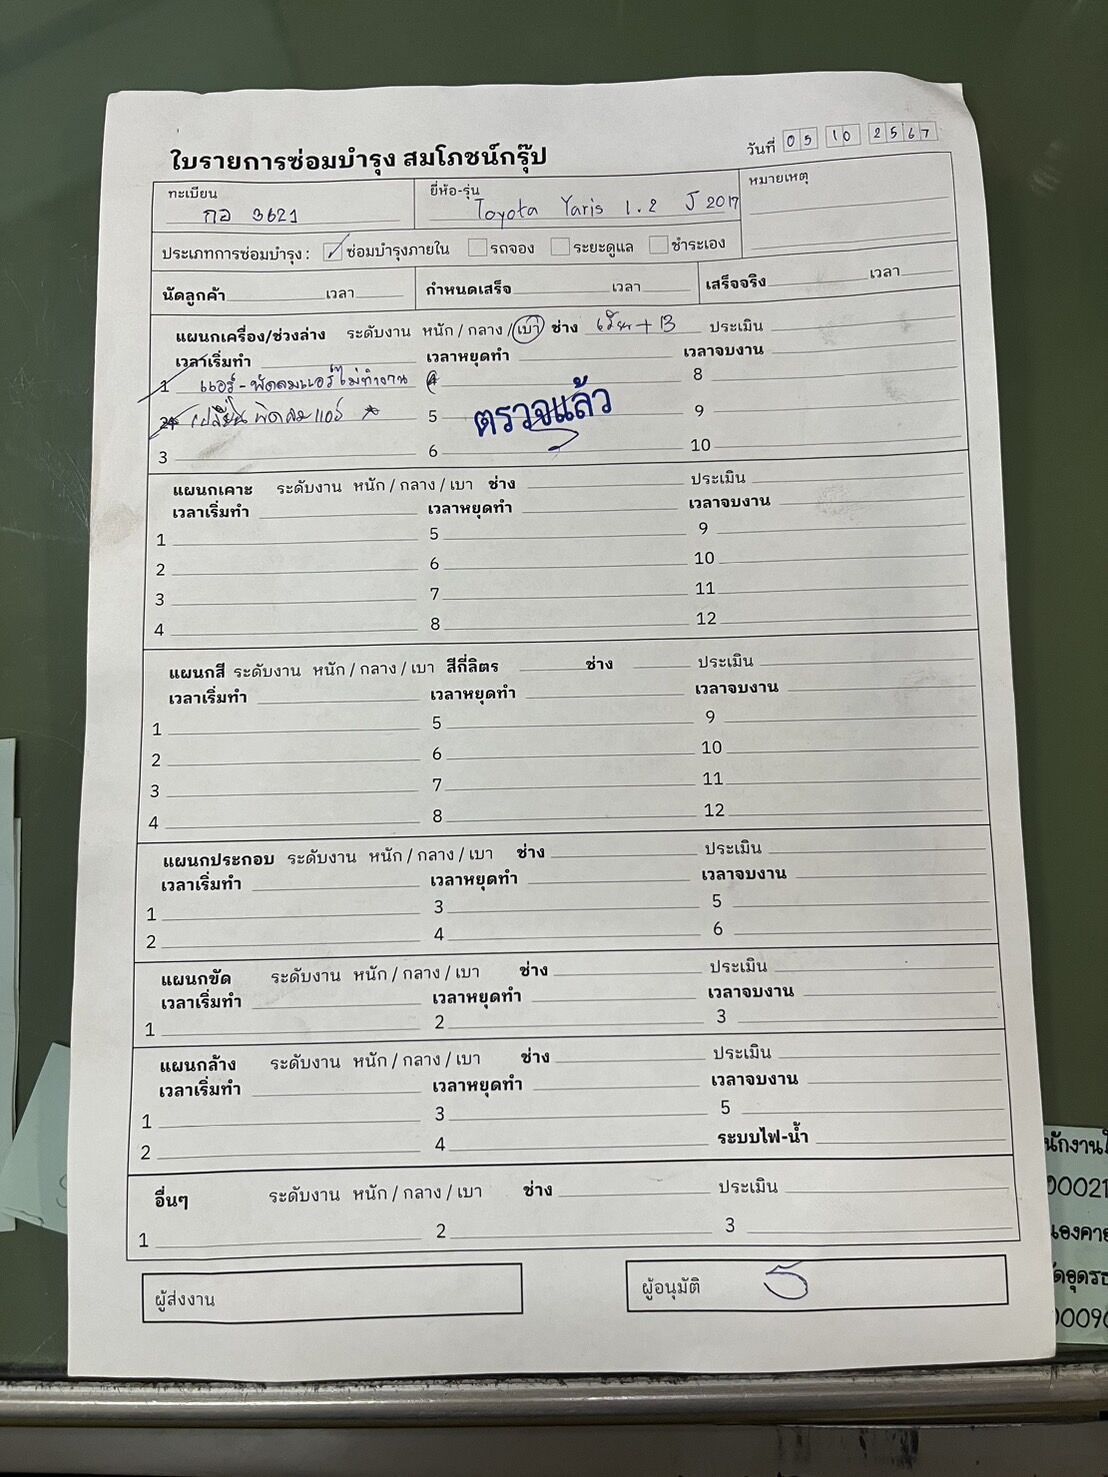 ใบรายการซ่อมบำรุง สมโภชน์กรุ๊ป
วันที่ 05 10 2567
ทะเบียน กอ 3621 ยี่ห้อ-รุ่น Toyota Yaris 1.2 J 2017 หมายเหตุ
ประเภทการซ่อมบำรุง : ซ่อมบำรุงภายใน รถจอง ระยะดูแล ชำระเอง
นัดลูกค้า เวลา กำหนดเสร็จ เวลา เสร็จจริง เวลา
แผนกเครื่อง/ช่วงล่าง ระดับงาน หนัก / กลาง / เบา ช่าง + B ประเมิน
เวลาเริ่มทำ เวลาหยุดทำ เวลาจบงาน
1 แอร์ - พัดลมแอร์ไม่ทำงาน 4 8
2 เปลี่ยน พัดลมแอร์ 5 ตรวจแล้ว 9
3 6 10
แผนกเคาะ ระดับงาน หนัก / กลาง / เบา ช่าง ประเมิน
เวลาเริ่มทำ เวลาหยุดทำ เวลาจบงาน
1 5 9
2 6 10
3 7 11
4 8 12
แผนกสี ระดับงาน หนัก / กลาง / เบา สีกี่ลิตร ช่าง ประเมิน
เวลาเริ่มทำ เวลาหยุดทำ เวลาจบงาน
1 5 9
2 6 10
3 7 11
4 8 12
แผนกประกอบ ระดับงาน หนัก / กลาง / เบา ช่าง ประเมิน
เวลาเริ่มทำ เวลาหยุดทำ เวลาจบงาน
1 3 5
2 4 6
แผนกขัด ระดับงาน หนัก / กลาง / เบา ช่าง ประเมิน
เวลาเริ่มทำ เวลาหยุดทำ เวลาจบงาน
1 2 3
แผนกล้าง ระดับงาน หนัก / กลาง / เบา ช่าง ประเมิน
เวลาเริ่มทำ เวลาหยุดทำ เวลาจบงาน
1 3 5
2 4 ระบบไฟ-น้ำ
อื่นๆ ระดับงาน หนัก / กลาง / เบา ช่าง ประเมิน
1 2 3
ผู้ส่งงาน ผู้อนุมัติ